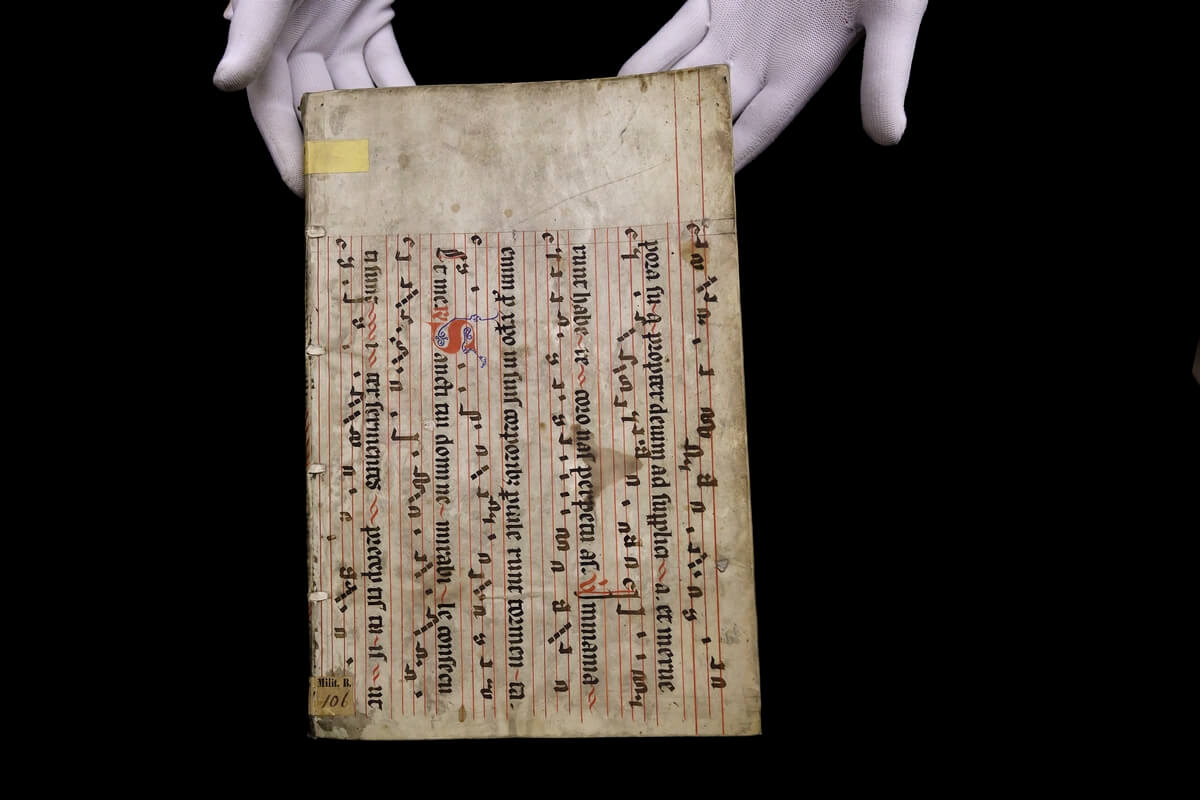 pora su a propter deum ad supplici a. et merue
runt habe re coro nas perpetu as. V
xp̄o in suis corporibꝫ ꝑtule runt tormen ta.
Et me R Sancti tui domine mirabi le consecu
ti sunt i ter seruientes precep tis tu is ut
Milit. B.
106